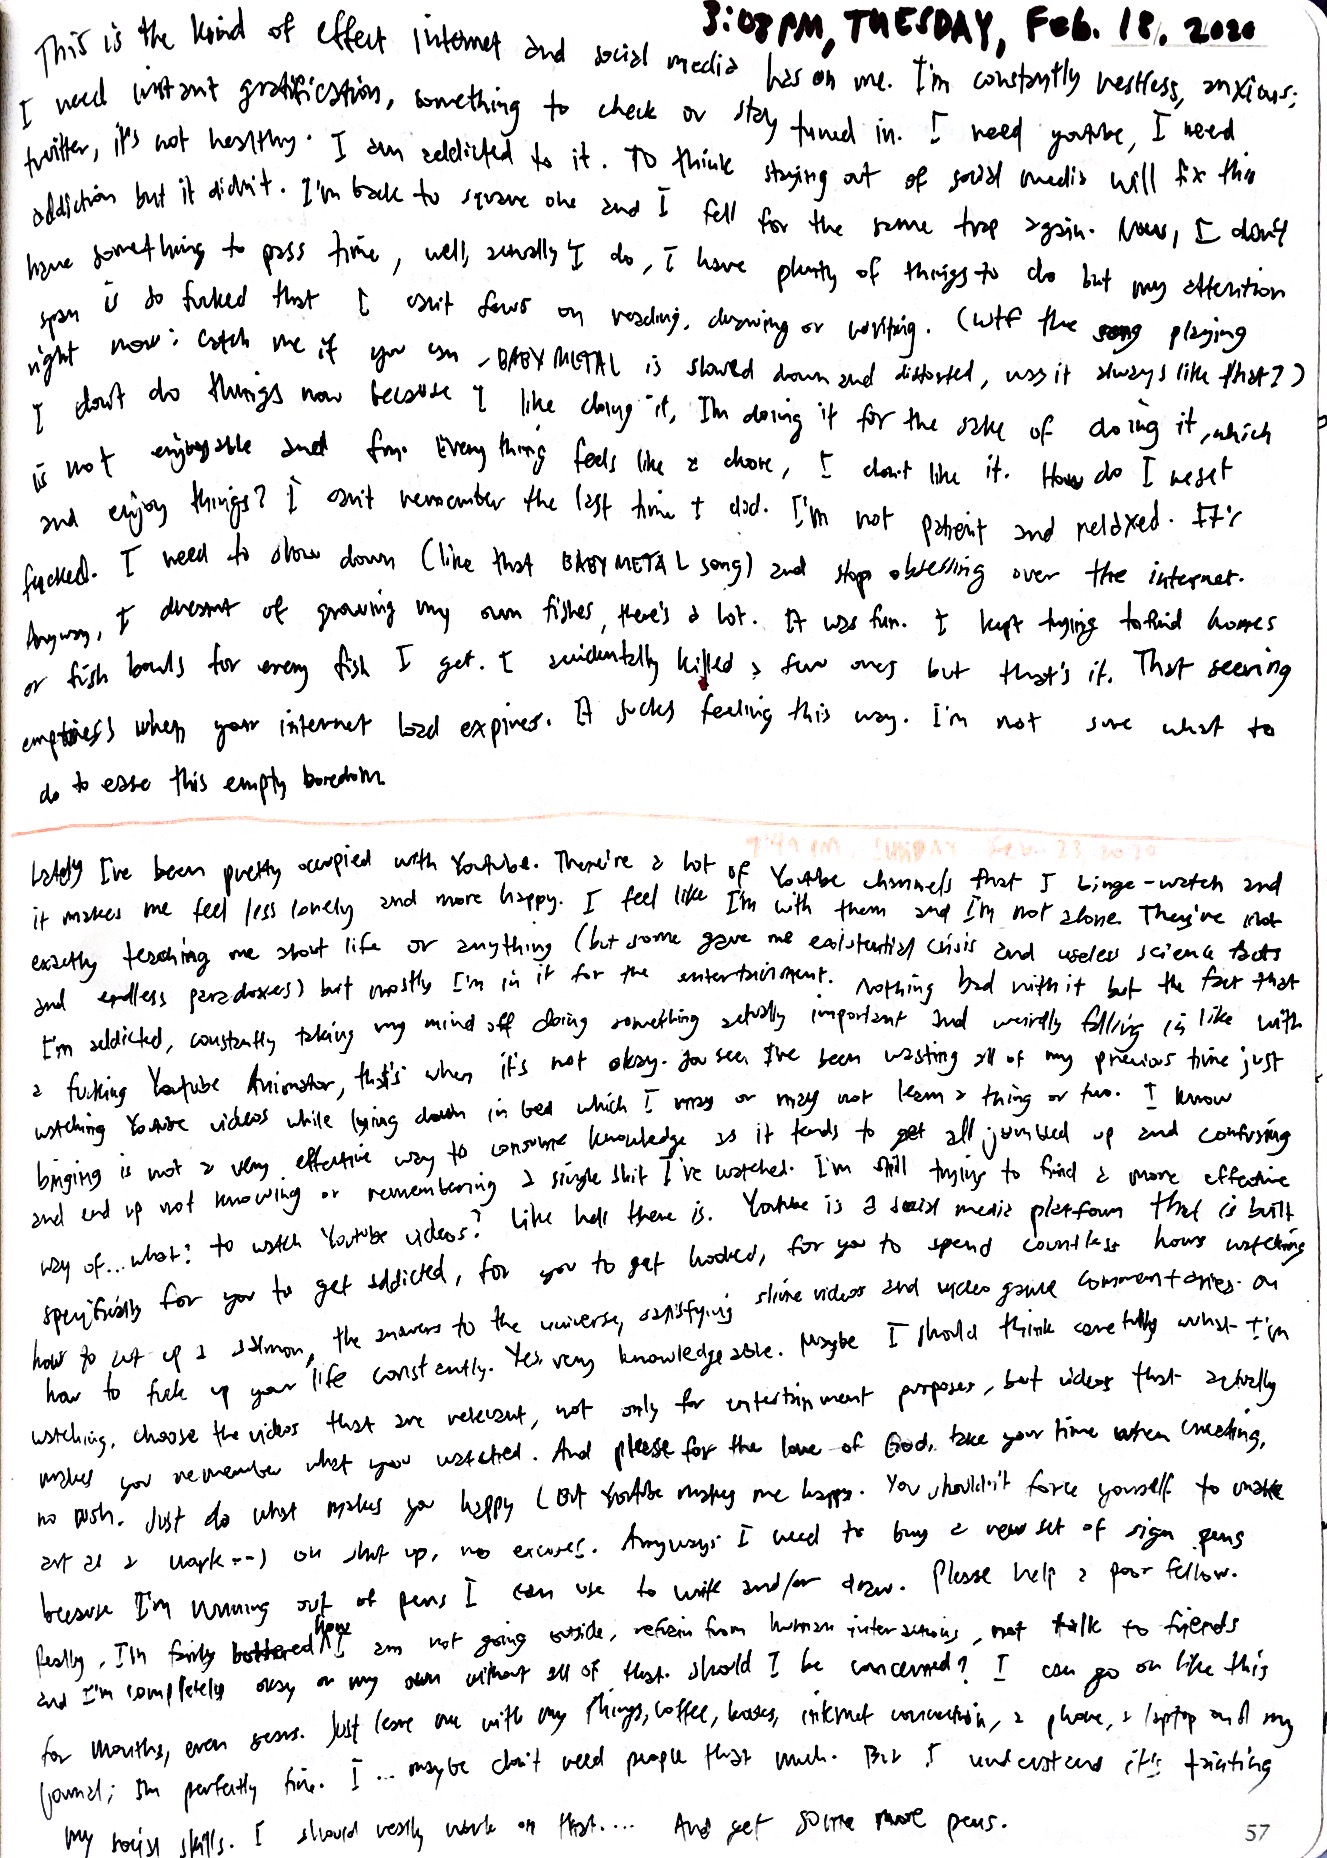 3:08 PM, TUESDAY, Feb. 18, 2020
This is the kind of effect internet and social media has on me. I'm constantly restless, anxious;
I need instant gratification, something to check or stay tuned in. I need youtube, I need
twitter, it's not healthy. I am addicted to it. To think staying out of social media will fix this
addiction but it didn't. I'm back to square one and I fell for the same trap again. Now, I don't
have something to pass time, well, actually I do, I have plenty of things to do but my attention
span is so fucked that I can't focus on reading, drawing or writing. (wtf the song playing
right now: Catch me if you can - BABYMETAL is slowed down and distorted, was it always like that?)
I don't do things now because I like doing it, I'm doing it for the sake of doing it, which
is not enjoyable and fun. Everything feels like a chore, I don't like it. How do I reset
and enjoy things? I can't remember the last time I did. I'm not patient and relaxed. It's
fucked. I need to slow down (like that BABYMETAL song) and stop obsessing over the internet.
Anyway, I dreamt of growing my own fishes, there's a lot. It was fun. I kept trying to find homes
or fish bowls for every fish I get. I accidentally killed a few ones but that's it. That seering
emptiness when your internet load expires. It sucks feeling this way. I'm not sure what to
do to ease this empty boredom.
7:49 PM, SUNDAY Feb. 23 2020
Lately I've been pretty occupied with Youtube. There're a lot of Youtube channels that I binge-watch and
it makes me feel less lonely and more happy. I feel like I'm with them and I'm not alone. They're not
exactly teaching me about life or anything (but some gave me existential crisis and useless science facts
and endless paradoxes) but mostly I'm in it for the entertainment. Nothing bad with it but the fact that
I'm addicted, constantly taking my mind off doing something actually important and weirdly falling in like with
a fucking Youtube Animator, that's when it's not okay. You see, I've been wasting all of my previous time just
watching Youtube videos while lying down in bed which I may or may not learn a thing or two. I know
binging is not a very effective way to consume knowledge as it tends to get all jumbled up and confusing
and end up not knowing or remembering a single shit I've watched. I'm still trying to find a more effective
way of... what? to watch Youtube videos? Like hell there is. Youtube is a social media platform that is built
specifically for you to get addicted, for you to get hooked, for you to spend countless hours watching
how to cut up a salmon, the answers to the universe, satisfying slime videos and video game commentaries on
how to fuck up your life constantly. Yes, very knowledgeable. Maybe I should think carefully what I'm
watching, choose the videos that are relevant, not only for entertainment purposes, but videos that actually
makes you remember what you watched. And please for the love of God, take your time when creating,
no rush. Just do what makes you happy (But Youtube makes me happy. You shouldn't force yourself to make
art as a work--) oh shut up, no excuses. Anyways I need to buy a new set of sign pens
because I'm running out of pens I can use to write and/or draw. Please help a poor fellow.
Really, I'm fairly bothered how I am not going outside, refrain from human interactions, not talk to friends
and I'm completely okay on my own without all of that. Should I be concerned? I can go on like this
for months, even years. Just leave me with my things, coffee, books, internet connection, a phone, a laptop and my
journal; I'm perfectly fine. I... maybe don't need people that much. But I understand it's tainting
my social skills. I should really work on that.... And get some more pens.
57